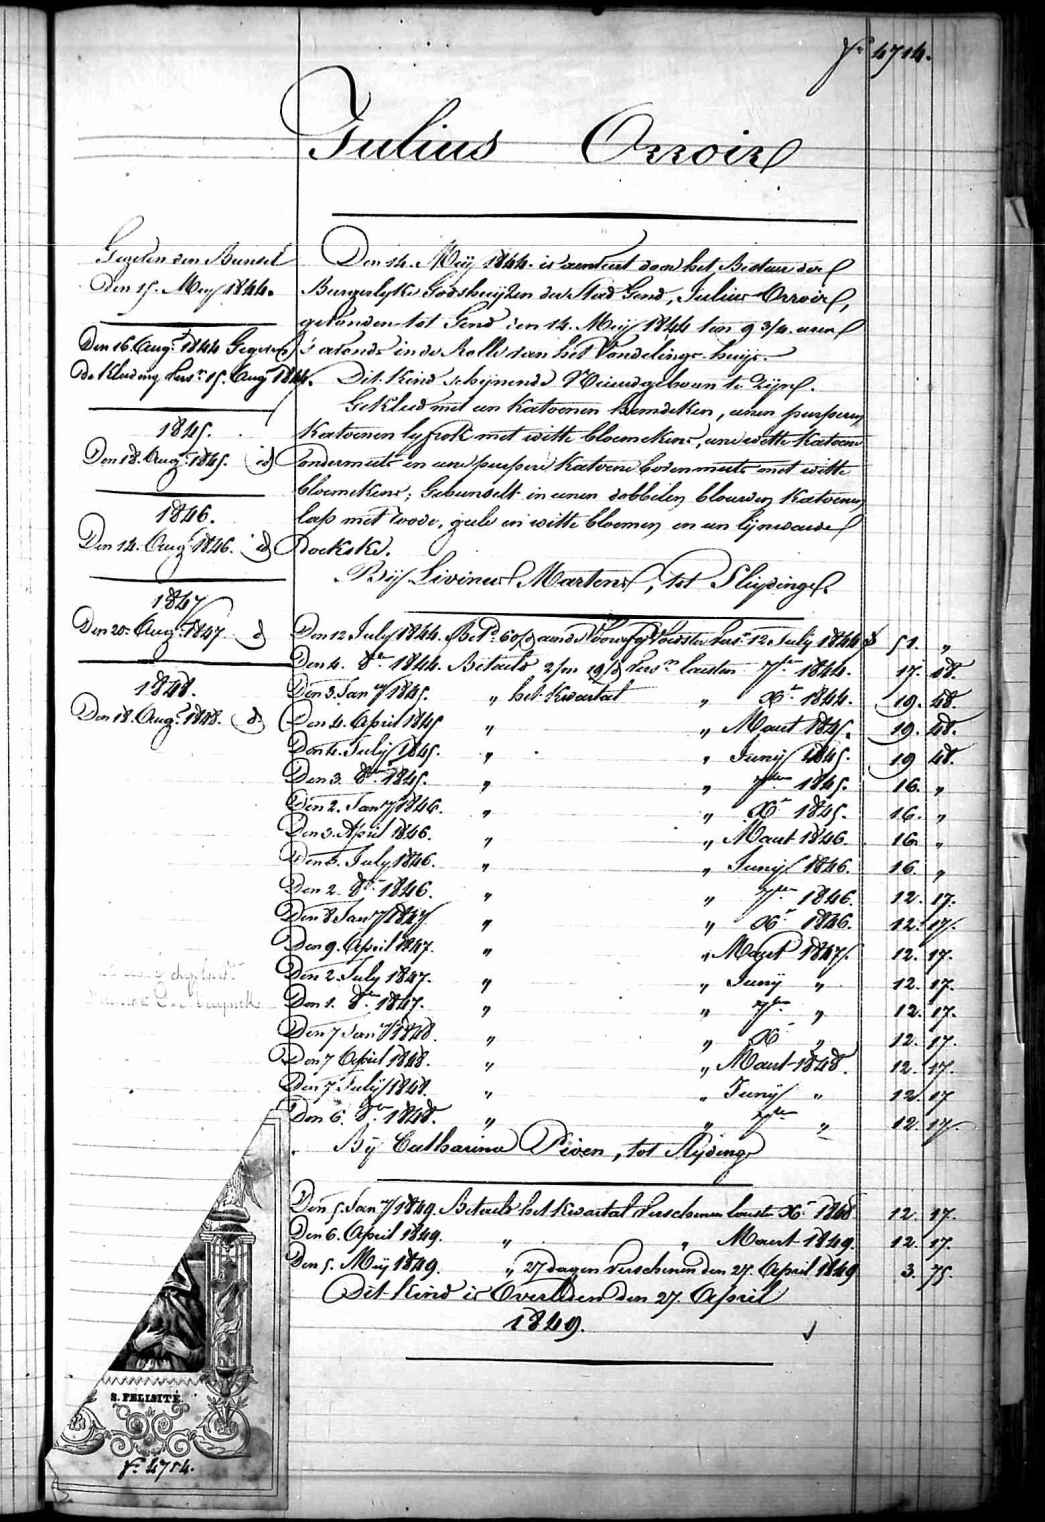 Nr 4714.
Julius Orroir
Gezeten den Bunsel
Den 15. Meij 1844.
Den 16. Augt 1844 Gegeven
de Kleding Versn 15. Augt 1844.
1845.
Den 18. Augt 1845. id
1846.
Den 14. Augt 1846. id
1847
Den 20. Augt 1847. id
1848.
Den 18. Augt 1848. id
Den 14. Meij 1844. is aenveert door het Bestuer der
Burgerlyke Godshuijzen der Stad Gend, Julius Orroir,
gevonden tot Gend den 14. Meij 1844 ten 9 3/4 uren
's avonds in de Rolle van het Vondelinge-huijs.
Dit Kind schijnende Nieuwgeboren te Zijn.
Gekleed met een Katoenen hemdeken, eenen purperen
Katoenen lyfrok met witte bloemekens, eene witte Katoene
ondermuts en eene purpere Katoene bovenmuts met witte
bloemekens; Gebunselt in eenen dobbelen blauwen Katoenen
lap met roode, geele en witte bloemen en een lijnwaede
Doekske.
Bij Livinus Martens, tot Sleydinge.
Den 12 July 1844. aen de Voedster Versn 12 July 1844 51. "
Den 4. 8bre 1844. Betaelt 2/m 19/d Versn laesten 7bre 1844. 17. 08.
Den 3. Jany 1845. " het Kwartael " Xbr 1844. 19. 48.
Den 4. April 1845 " " Maert 1845. 19. 48.
Den 4. July 1845. " " Junij 1845. 19 48.
Den 3. 8bre 1845. " " 7bre 1845. 16. "
Den 2. Jany 1846. " " Xbr 1845. 16. "
Den 3. April 1846. " " Maert 1846. 16. "
Den 3. July 1846. " " Junij 1846. 16. "
Den 2. 8bre 1846. " " 7bre 1846. 12. 17.
Den 8 Jany 1847 " " Xbr 1846. 12. 17.
Den 9. April 1847. " " Maert 1847. 12. 17.
Den 2. July 1847. " " Junij " 12. 17.
Den 1. 8bre 1847. " " 7bre " 12. 17.
Den 7 Jany 1848. " " Xbr " 12. 17.
Den 7 April 1848. " " Maert 1848. 12. 17.
Den 7 July 1848. " " Junij " 12. 17
Den 6. 8bre 1848. " " 7bre " 12 17.
Bij Catharina Piven, tot Slijdinge
Den 5 Jany 1849. Betaelt het Kwartael Verschenen laesten Xbr 1848 12. 17.
Den 6. April 1849. " " Maert 1849. 12. 17.
Den 5. Meij 1849. " 27 dagen Verschenen den 27. April 1849 3. 75.
Dit Kind is Overleden den 27. April
1849.
S. FELICITÉ.
Nr 4754.